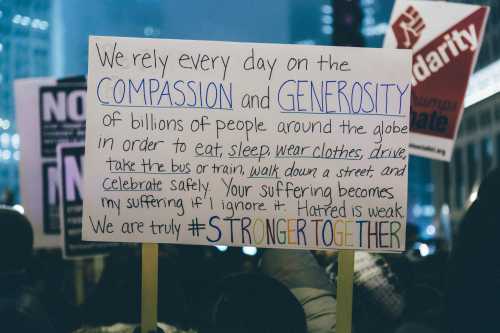 We rely every day on the
COMPASSION and GENEROSITY
of billions of people around the globe
in order to eat, sleep, wear clothes, drive,
take the bus or train, walk down a street, and
celebrate safely. Your suffering becomes
my suffering if I ignore it. Hatred is weak.
We are truly #STRONGERTOGETHER
NO
N
darity
rumps
ate